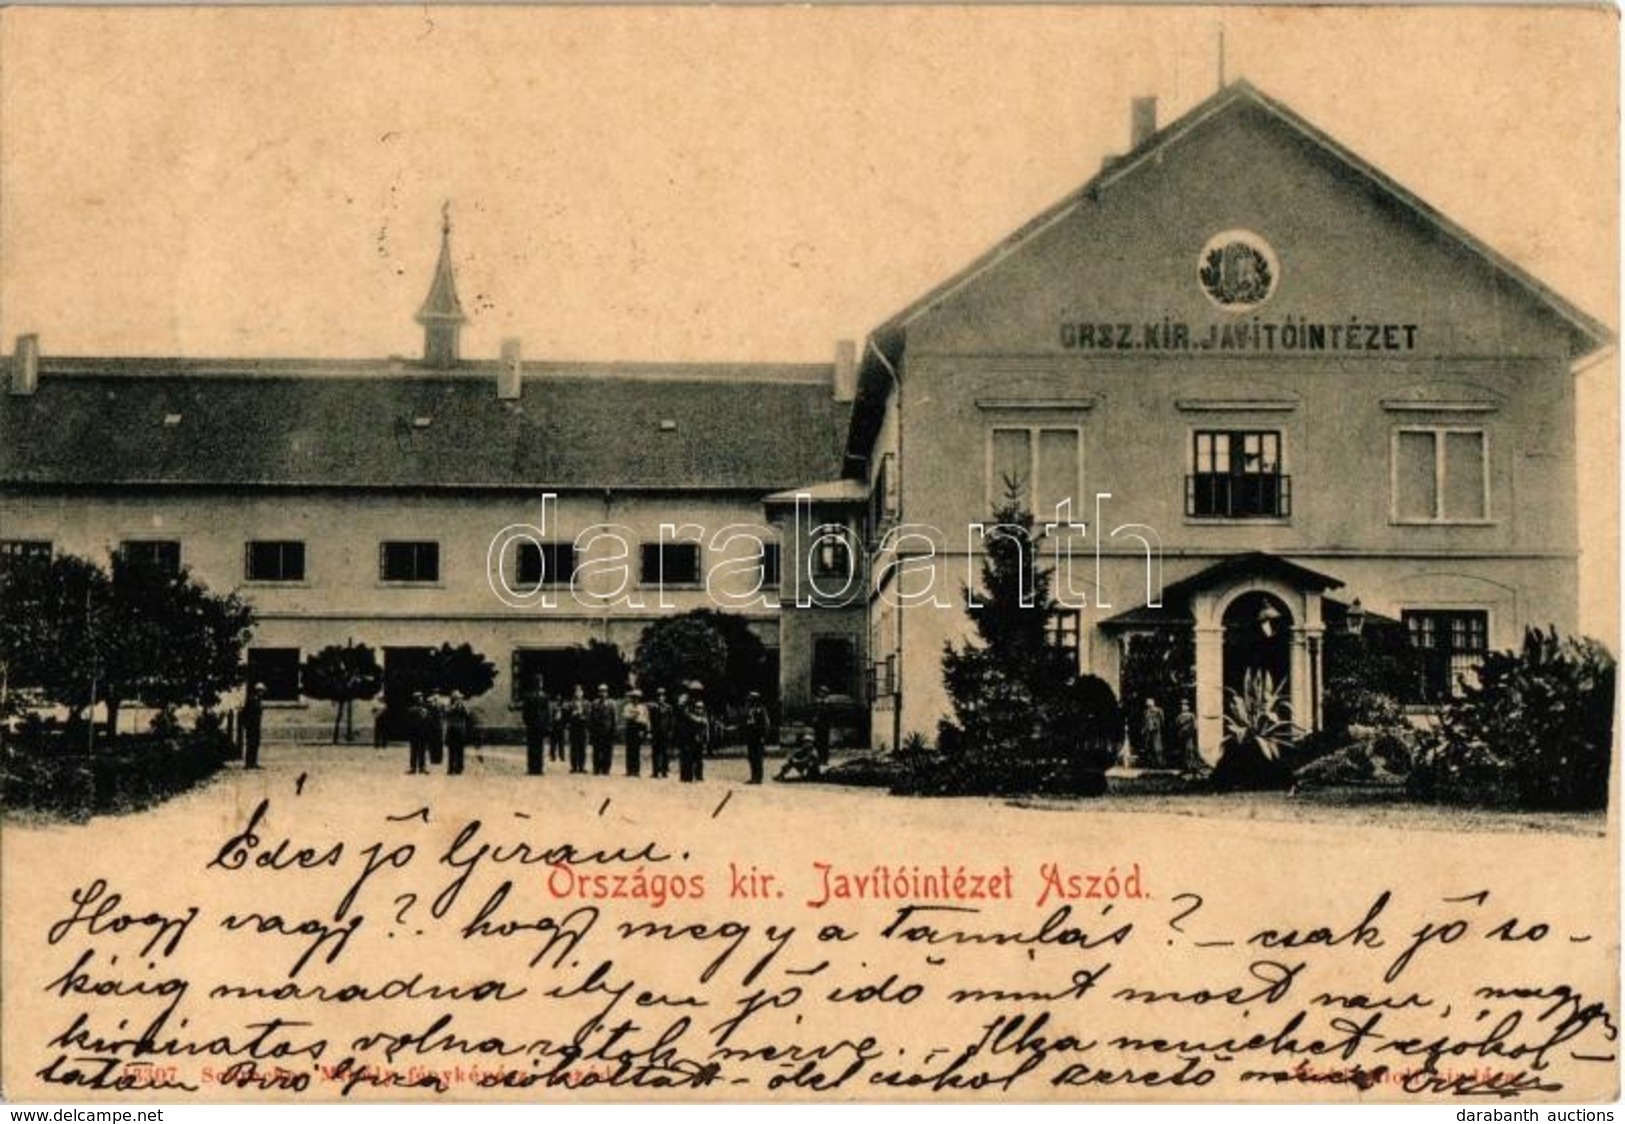 ORSZ.KIR.JAVÍTÓINTÉZET
darabanth
Édes jó Gizám!
Országos kir. Javítóintézet Aszód.
Hogy vagy? hogy megy a tanulás? – csak jó so-
káig maradna ilyen jó idő mint most van, nagyon
kívánatos volna rátok nézve. – Ilka néniéket csókol-
tatom csókoltatt – ölel csókol szerető
13307
delcampe.net
darabanth auctions